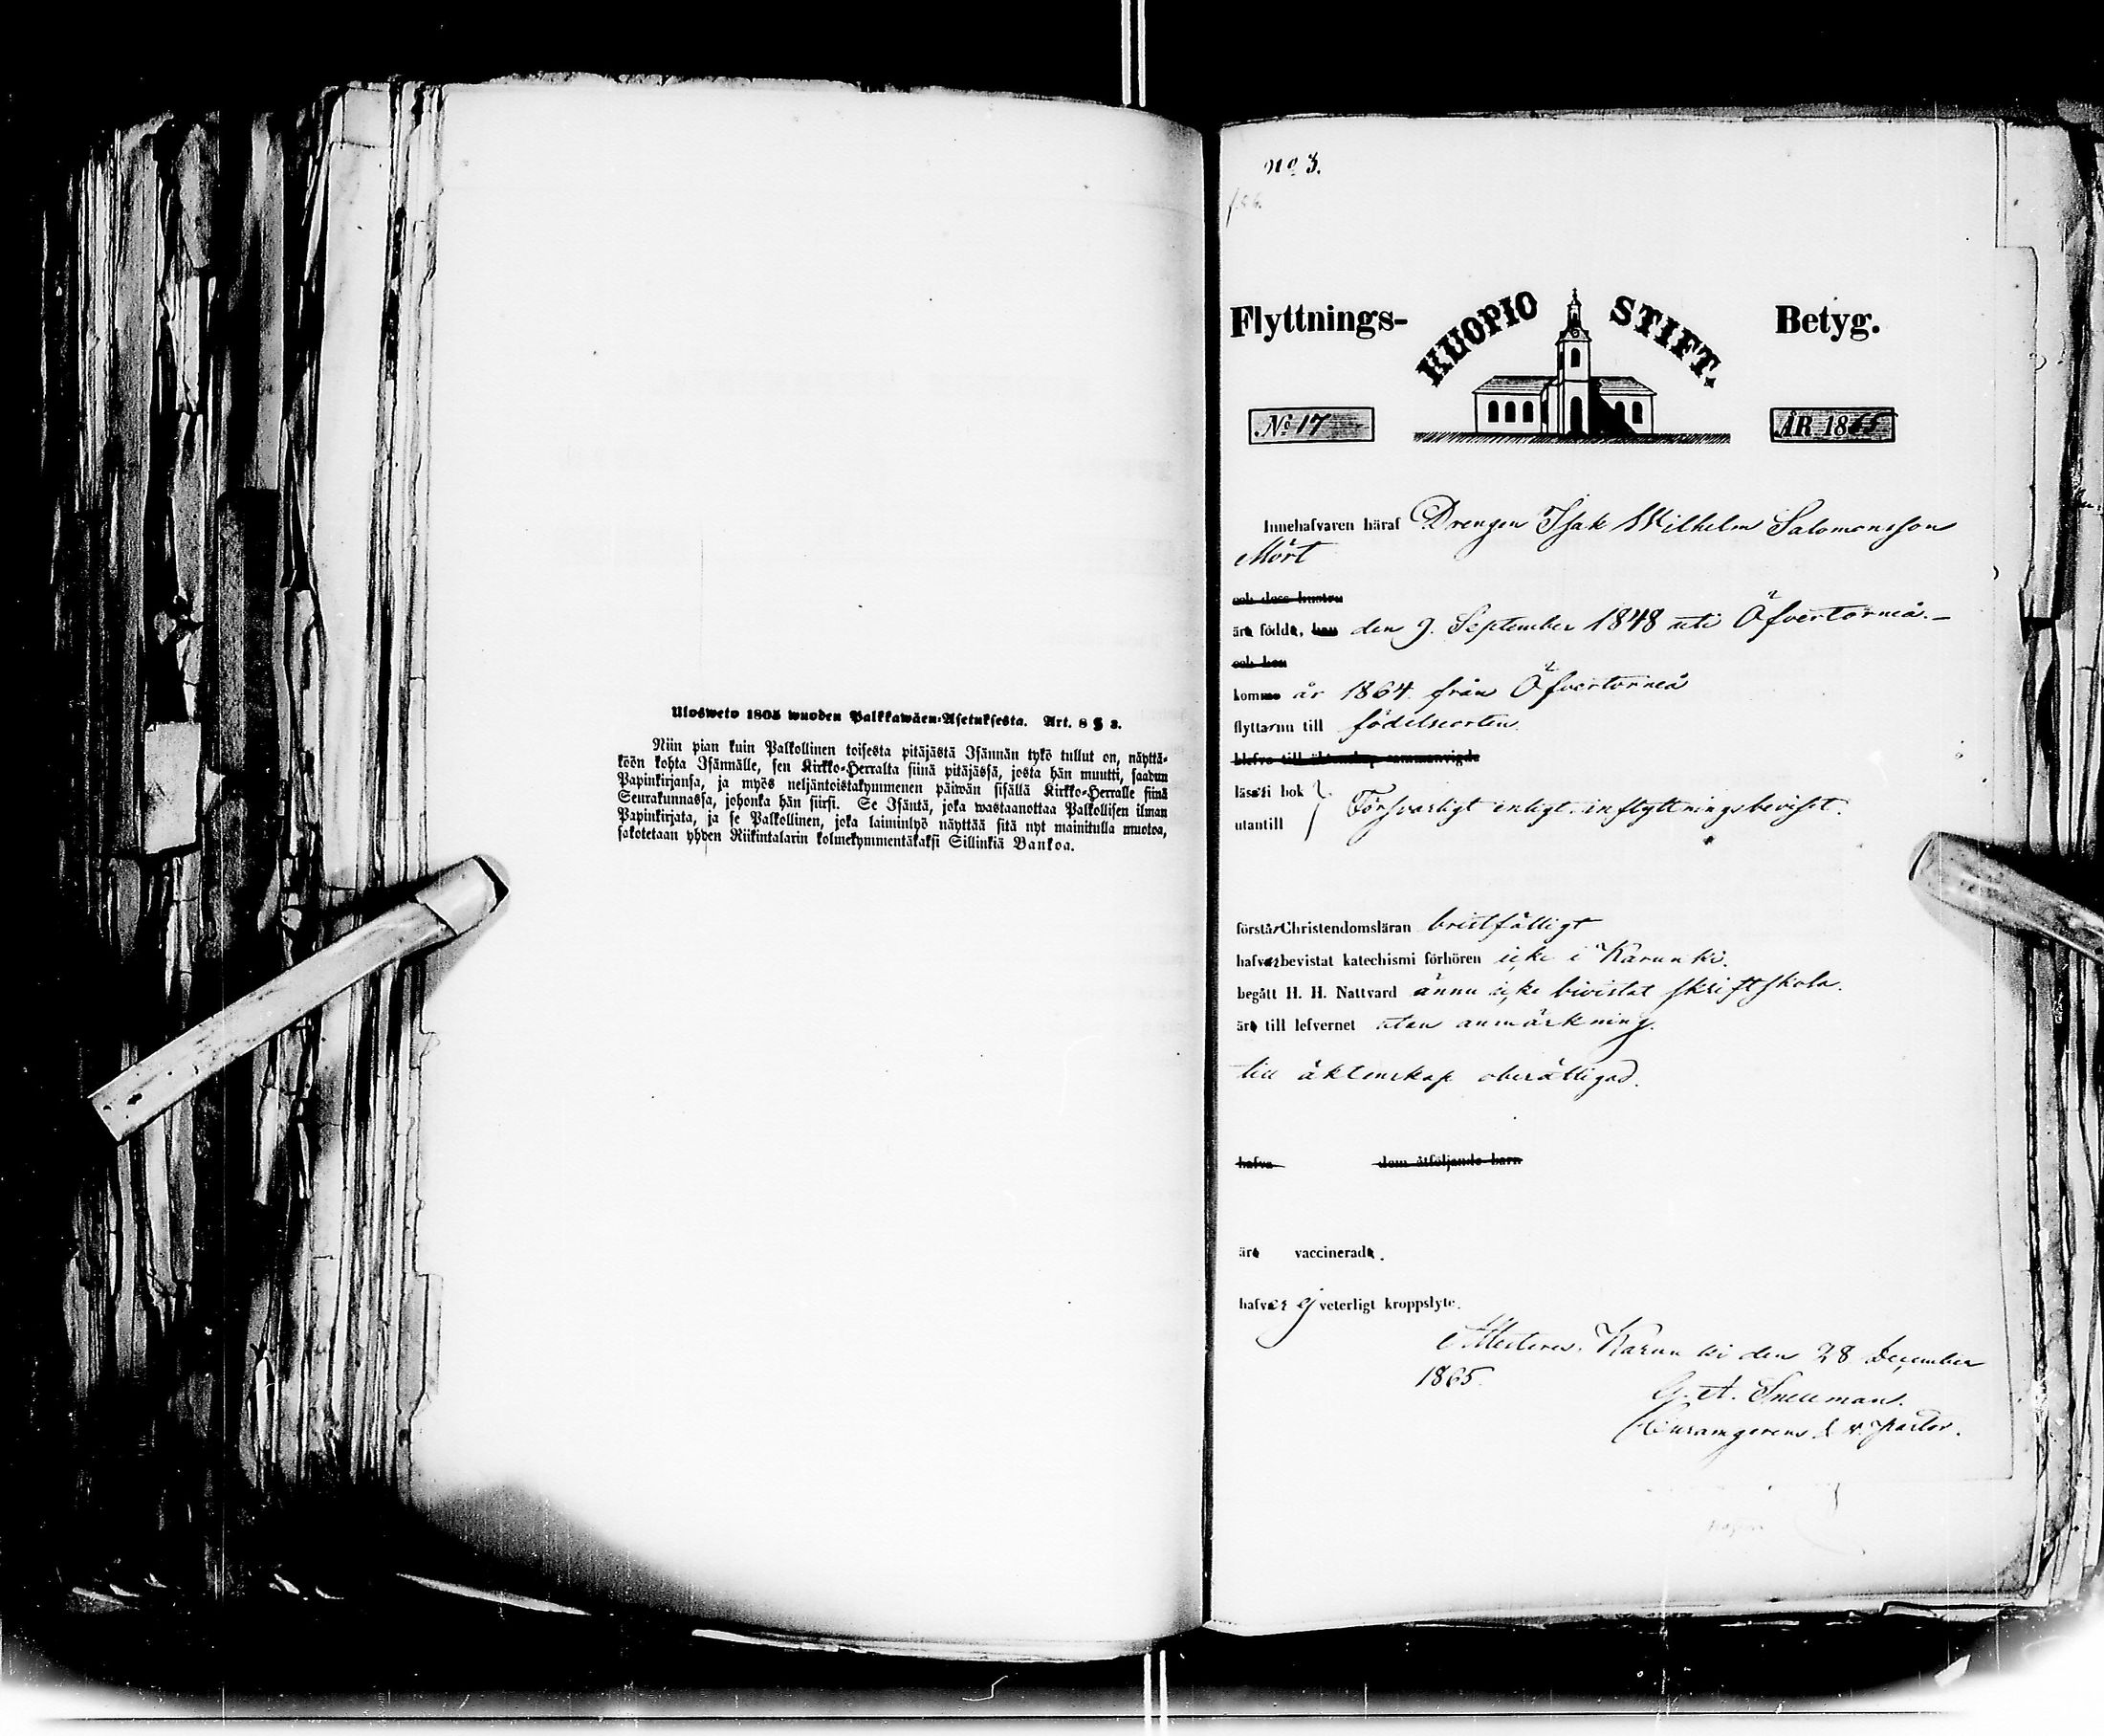 Ulosweto 1805 wuoden Palkkawäen-Asetuksesta. Art. 8 § 3.
Niin pian kuin Palkollinen toisesta pitäjästä Isännän tykö tullut on, näyttä-
köön kohta Isännälle, sen Kirkko-Herralta siinä pitäjässä, josta hän muutti, saadun
Papinkirjansa, ja myös neljäntoistakymmenen päiwän sisällä Kirkko-Herralle siinä
Seurakunnassa, johonka hän siirsi. Se Isäntä, joka wastaanottaa Palkollisen ilman
Papinkirjata, ja se Palkollinen, joka laiminlyö näyttää sitä nyt mainitulla muotoa,
sakotetaan yhden Riikintalarin kolmekymmentäkaksi Sillinkiä Bankoa.
No 3.
Flyttnings- KUOPIO STIFT. Betyg.
No 17 ÅR 1865
Innehafvaren häraf Drengen Isak Wilhelm Salomonsson
Mört
och dess hustru
äro födde, han den 9. September 1848 uti Öfvertorneå.-
och hon
kommo år 1864 från Öfvertorneå
flytta nu till födelseorten.
blefvo till äktenskap sammanvigde
läsa i bok
Försvarligt enligt inflyttningsbeviset.
utantill
förstår Christendomsläran bristfälligt
hafver bevistat katechismi förhören icke i Karunki.
begått H. H. Nattvard ännu icke bivistat skriftskola.
äro till lefvernet utan anmärkning.
till äktenskap oberättigad.
hafva dem åtföljande barn
äro vaccinerade.
hafver ej veterligt kroppslyte.
Attesteras. Karunki den 28 December
1865.
G. A. Snellman.
v. pastor.